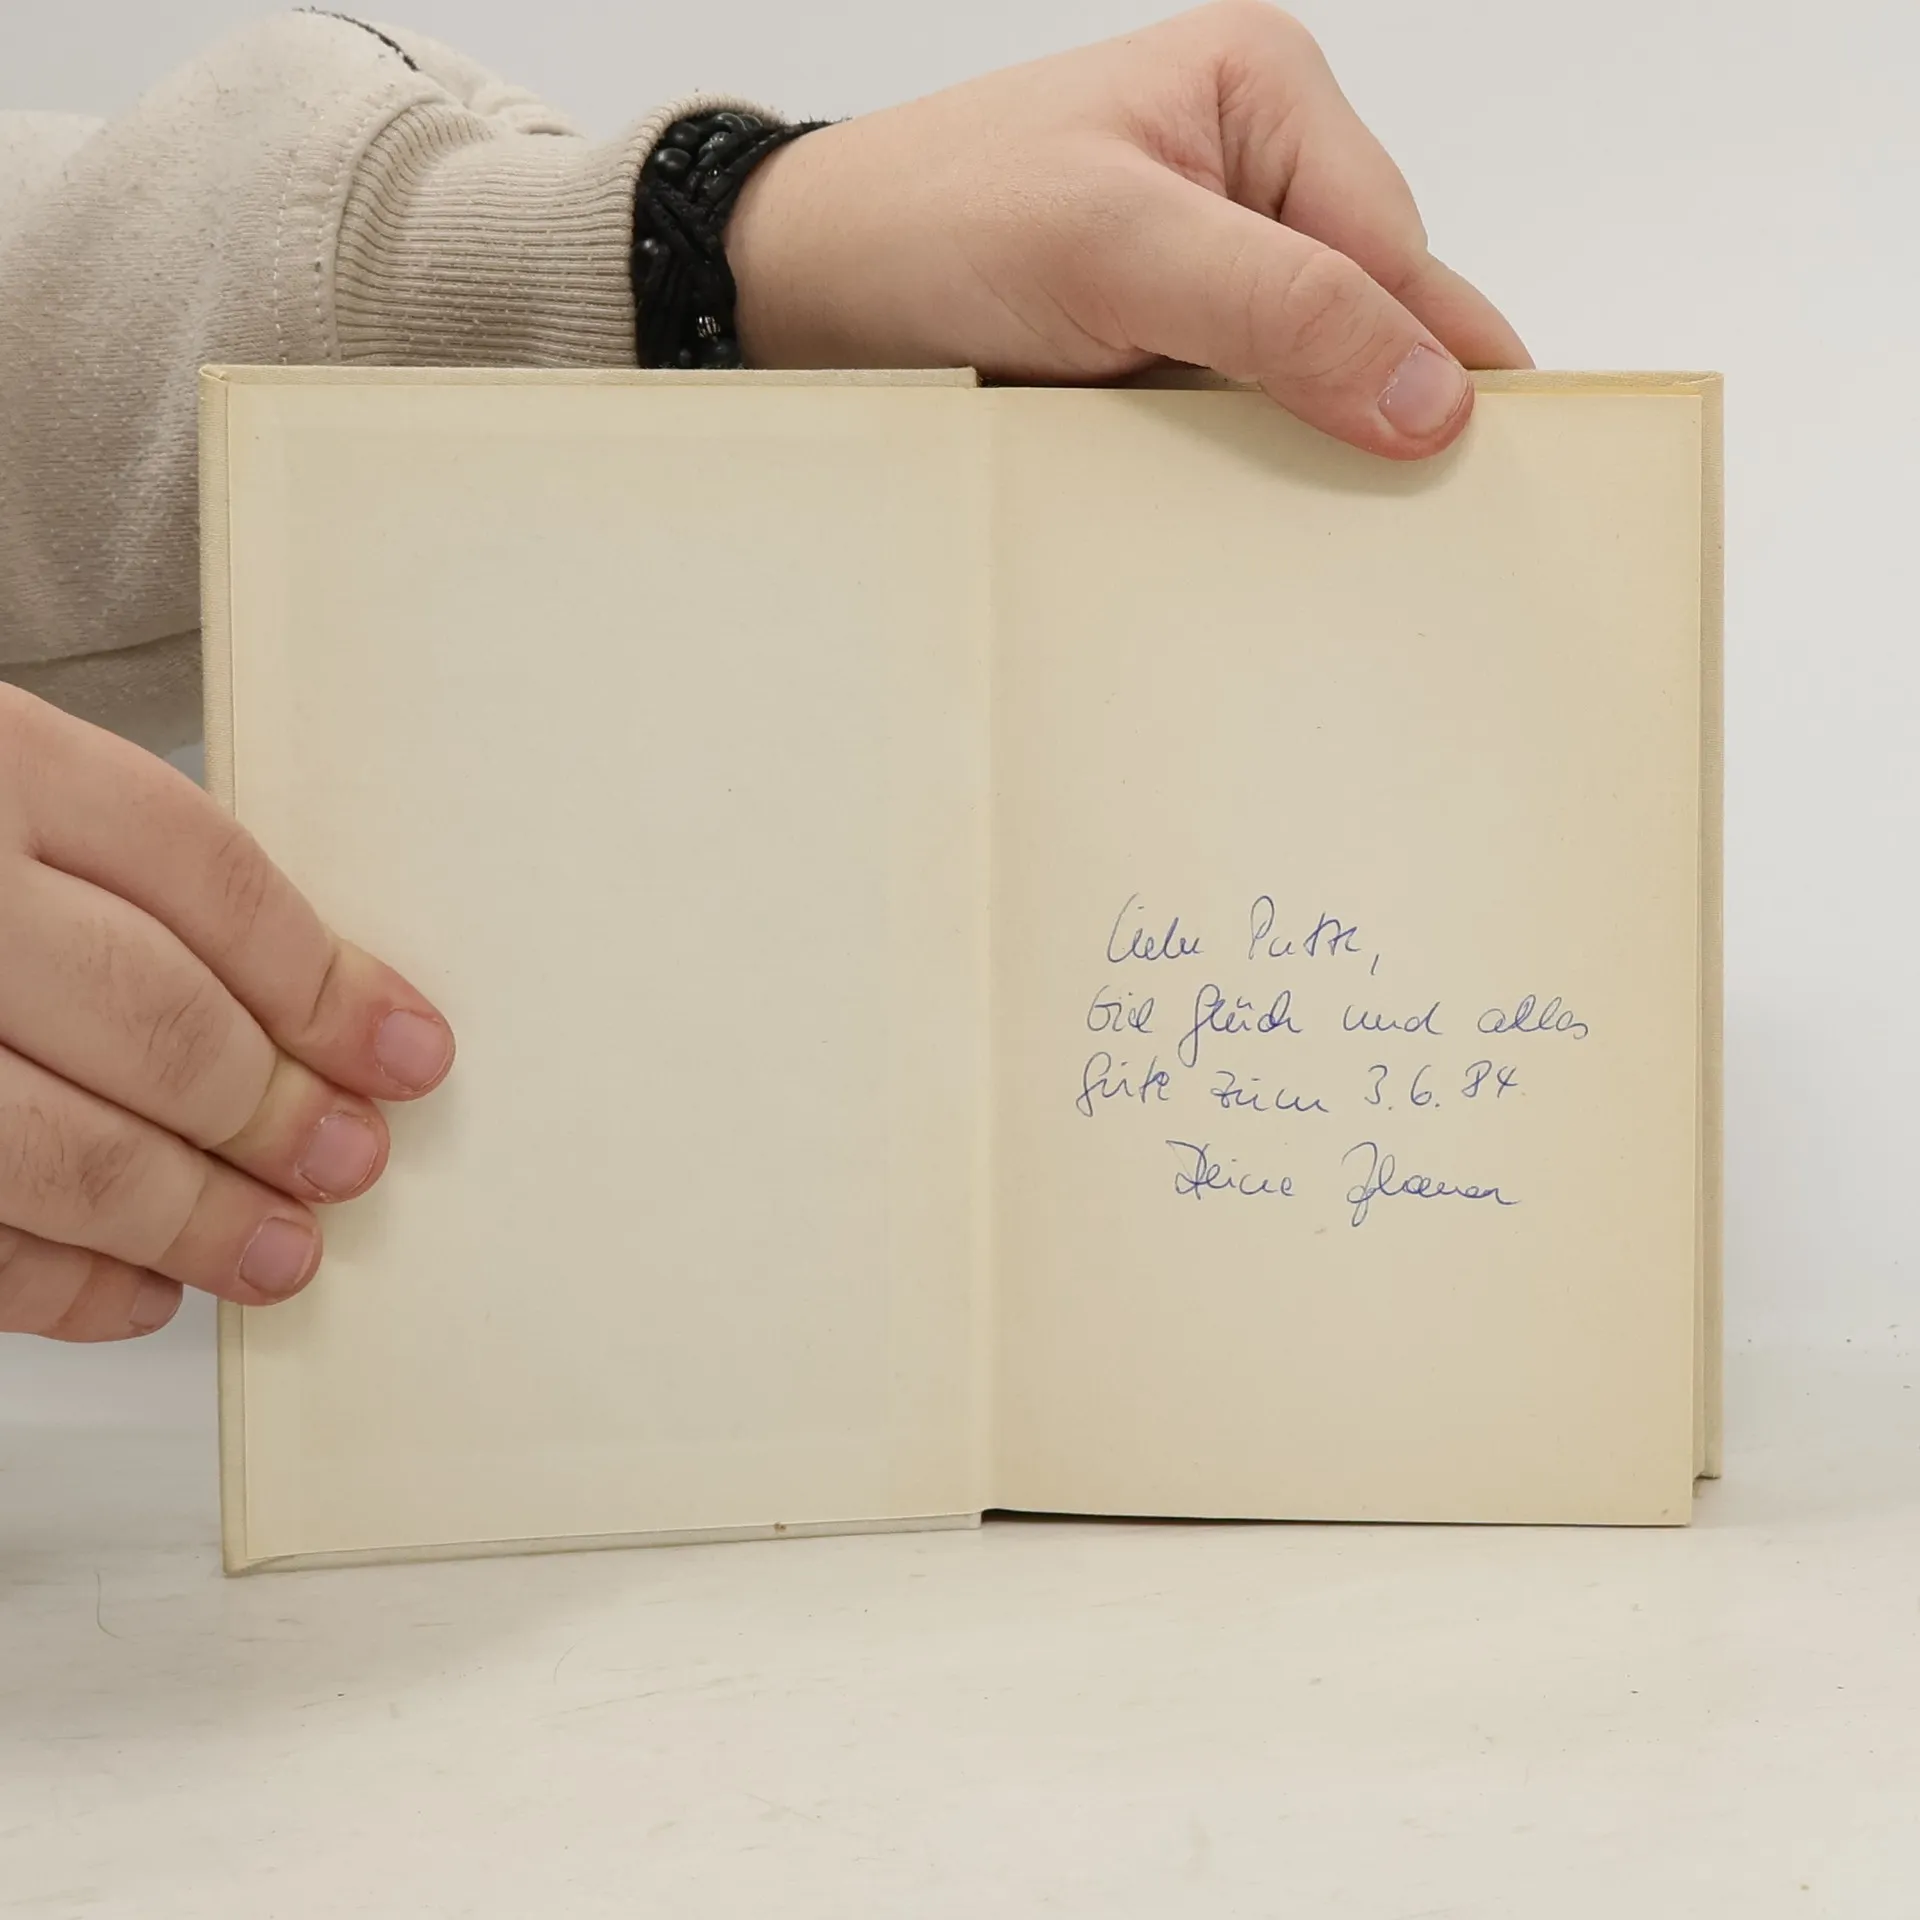 Liebe
viel Glück und alles
Gute zum 3.6.84.
Deine